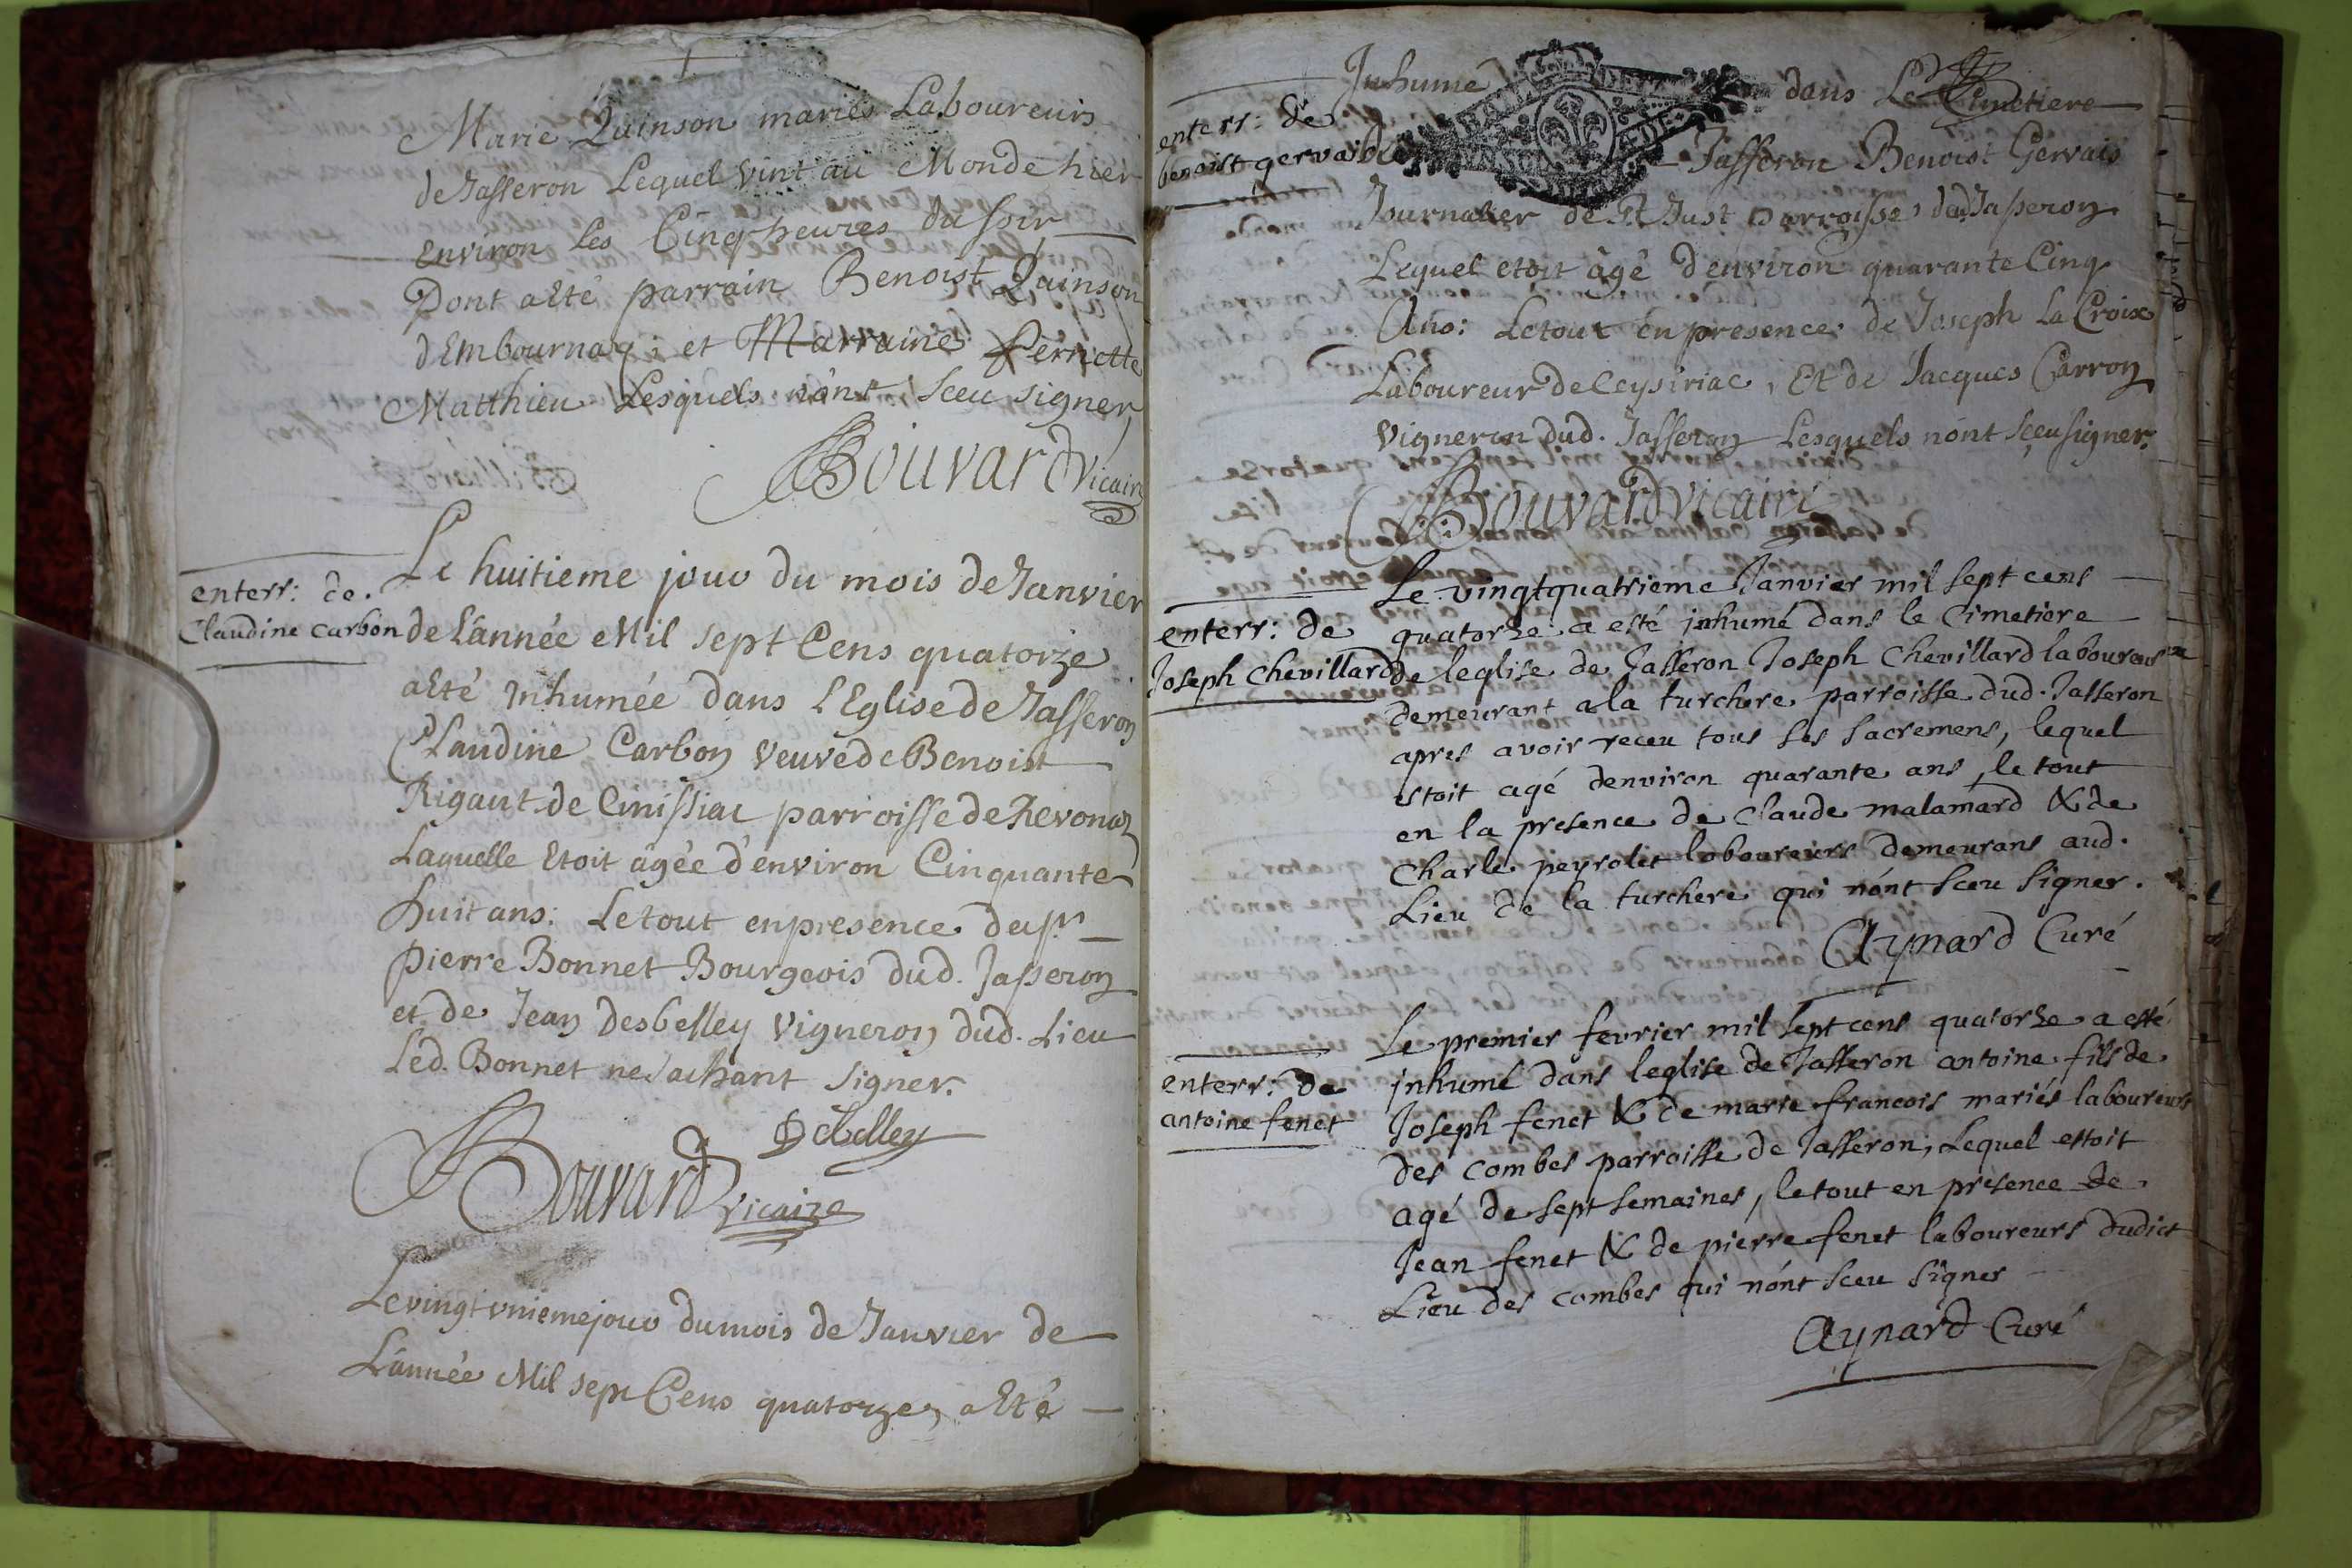 Marie Quinson mariés Laboureurs
de Jasseron Lequel vint au Monde hier
Environ Les Cinq heures du soir
Dont a Eté parrain Benoist Quinson
dEmbournay; et Marraine Pernette
Matthieu Lesquels n'ont sceu signer
Bouvard Vicaire
enterr: de
Claudine Carbon
Le huitieme jour du mois de Janvier
de L'année Mil sept Cens quatorze
a Eté Inhumée dans L'Eglise de Jasseron
Claudine Carbon veuve de Benoist
Rigaut de Cinissiac parroisse de Revonaz
Laquelle Etoit âgée d'environ Cinquante
huit ans: Le tout en presence du sr
Pierre Bonnet Bourgeois dud. Jasseron
et de Jean Desbelley vigneron dud. Lieu
Led. Bonnet ne sachant signer.
Debelley
Bouvard vicaire
Le vingt unieme jour du mois de Janvier de
L'année Mil sept Cens quatorze, a Eté
Inhumé dans Le Cimetiere
enterr: de
benoist gervais
de Jasseron Benoist Gervais
Journalier de St Just parroisse dud Jasseron
Lequel etoit âgé d'environ quarante Cinq
Ans: Le tout en presence de Joseph La Croix
Laboureur de Ceysiriac, Et de Jacques Carron
vigneron dud. Jasseron Lesquels n'ont sceu signer.
Bouvard vicaire
enterr: de
Joseph Chevillard
Le vingtquatrieme Janvier mil sept cens
quatorze a esté inhumé dans le Cimetiere
de leglise de Jasseron Joseph Chevillard laboureur
demeurant a la turchere parroisse dud. Jasseron
apres avoir receu tous ses sacremens, lequel
estoit agé denviron quarante ans, le tout
en la presence de Claude malamard & de
Charle peyrolet laboureurs demeurans aud.
Lieu de la turchere qui n'ont sceu signer.
Aynard Curé
enterr: de
antoine fenet
Le premier fevrier mil sept cens quatorze a esté
inhumé dans leglise de Jasseron antoine fils de
Joseph fenet & de marie francois mariés laboureurs
des combes parroisse de Jasseron, Lequel estoit
agé de sept semaines, le tout en presence de
Jean fenet & de pierre fenet laboureurs dudict
Lieu des combes qui n'ont sceu signer
Aynard Curé